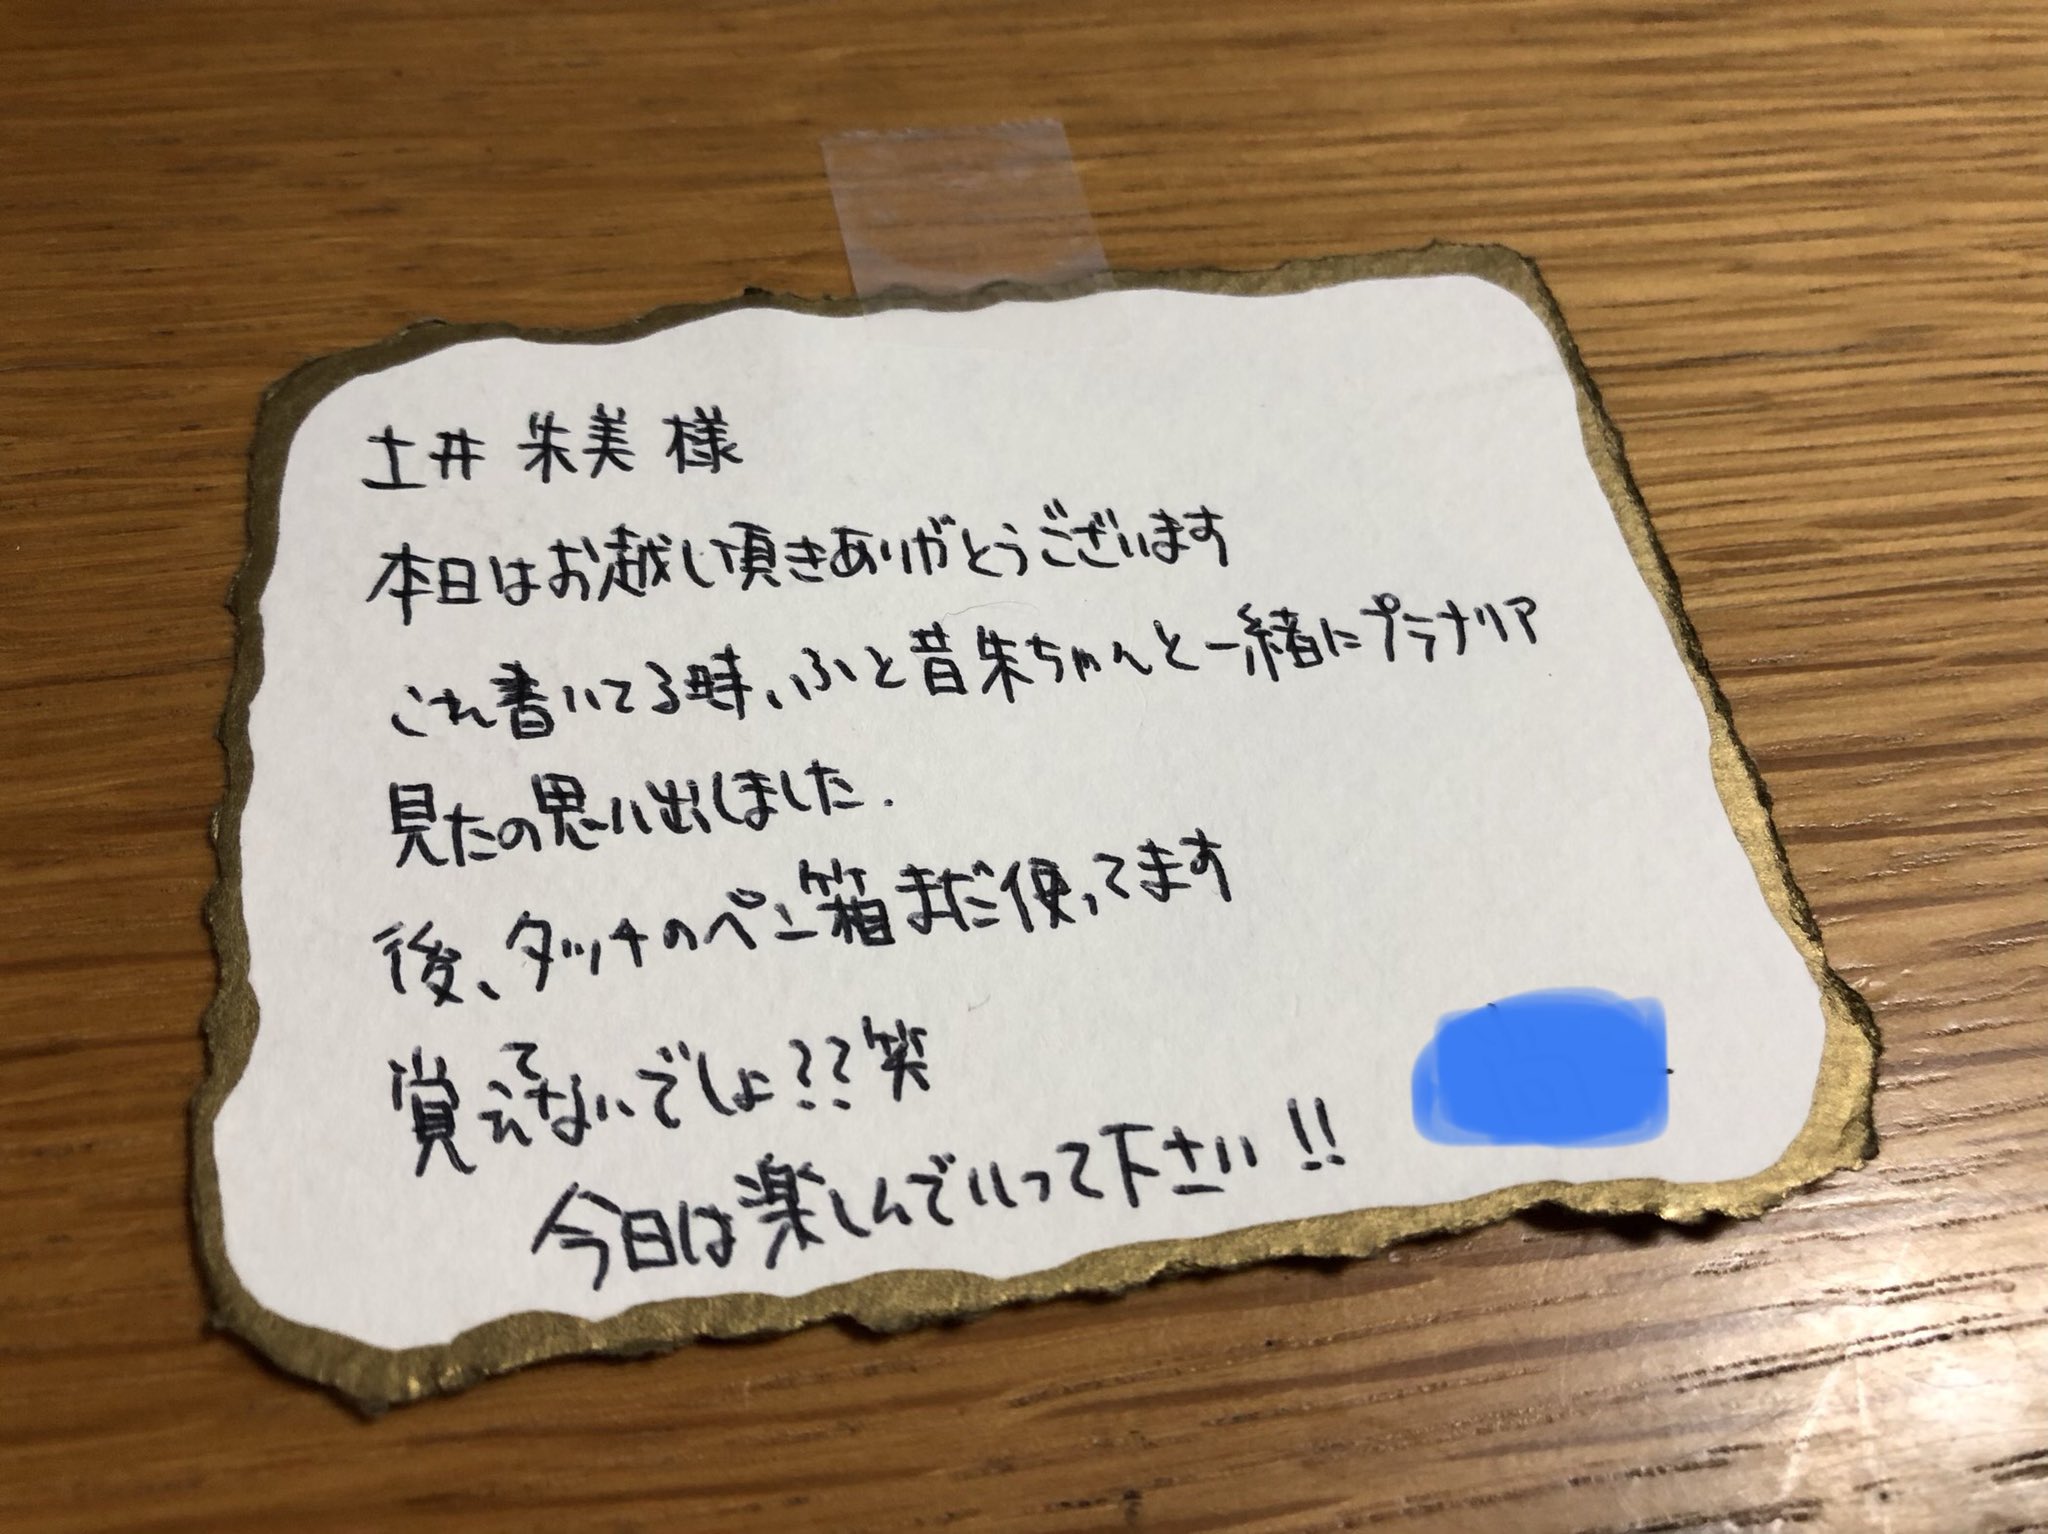 土井 朱美 様
本日はお越し頂きありがとうございます
これ書いてる時、ふと昔朱ちゃんと一緒にプラナリア
見たの思い出しました.
後、タッチのペン箱まだ使ってます
覚えてないでしょ??笑
今日は楽しんでいって下さい!!